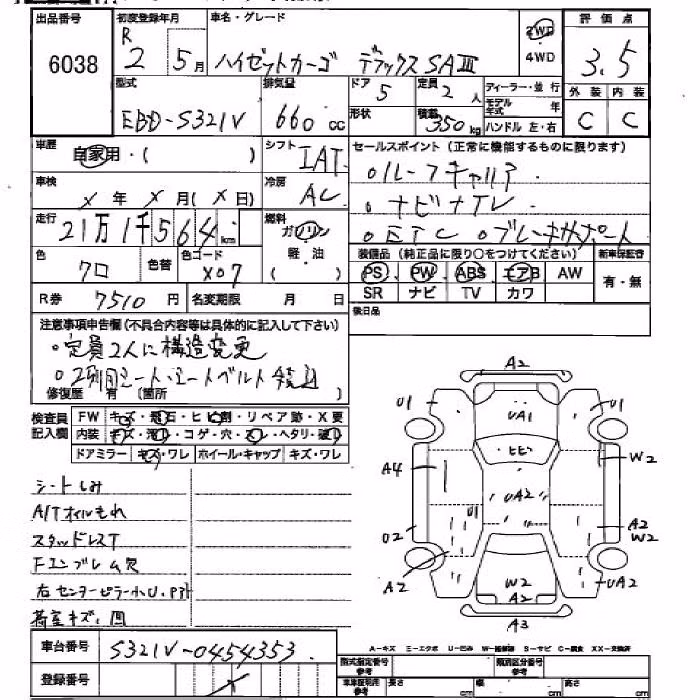 出品番号
6038
初度登録年月
R 2 5月
車名・グレード
ハイゼットカーゴ デラックスSAⅢ
2WD
4WD
評価点
3.5
外装 内装
C C
型式
EBD-S321V
排気量
660 cc
ドア 5
形状
定員 2 人
積載 350 kg
ディーラー・並行
モデル年式 年
ハンドル 左・右
車歴
自家用・( )
シフト IAT
車検
X 年 X 月 ( X 日)
冷房 AC
走行
21万1千564 km
燃料
ガソリン
軽・油
( )
色
クロ
色替
色コード
X07
R券 7510 円
名変期限 月 日
セールスポイント (正常に機能するものに限ります)
・ルーフキャリア
・ナビナTV
・ETC ・ブレーキサポート
装備品 (純正品に限り〇をつけてください)
新車保証書
PS PW ABS エアB AW
有・無
SR ナビ TV カワ
後日品
注意事項申告欄(不具合内容等は具体的に記入して下さい)
・定員2人に構造変更
・2列目シート・シートベルト
修復歴 有 (箇所 )
検査員
記入欄
FW キズ・飛石・ヒビ割・リペア跡・X更
内装 キズ・汚れ・コゲ・穴・スレ・ヘタリ・破れ
ドアミラー キズ・ワレ ホイール・キャップ キズ・ワレ
シートしみ
A/Tオイルもれ
スタッドレスT
Fエンブレム欠
右センターピラー小U・P跡
荷室キズ・凹
A2
U1
UA1
U1
ヒビ
W2
A4
U1
UA2
A2
W2
U2
A2
W2
A2
UA2
A3
車台番号
S321V-0454353
登録番号
A-キズ E-エクボ U-凹み W-補修跡 S-サビ C-腐食 XX-交換済
型式指定番号
参考
類別区分番号
参考
車車証明用
参考
長さ cm
幅 cm
高さ cm